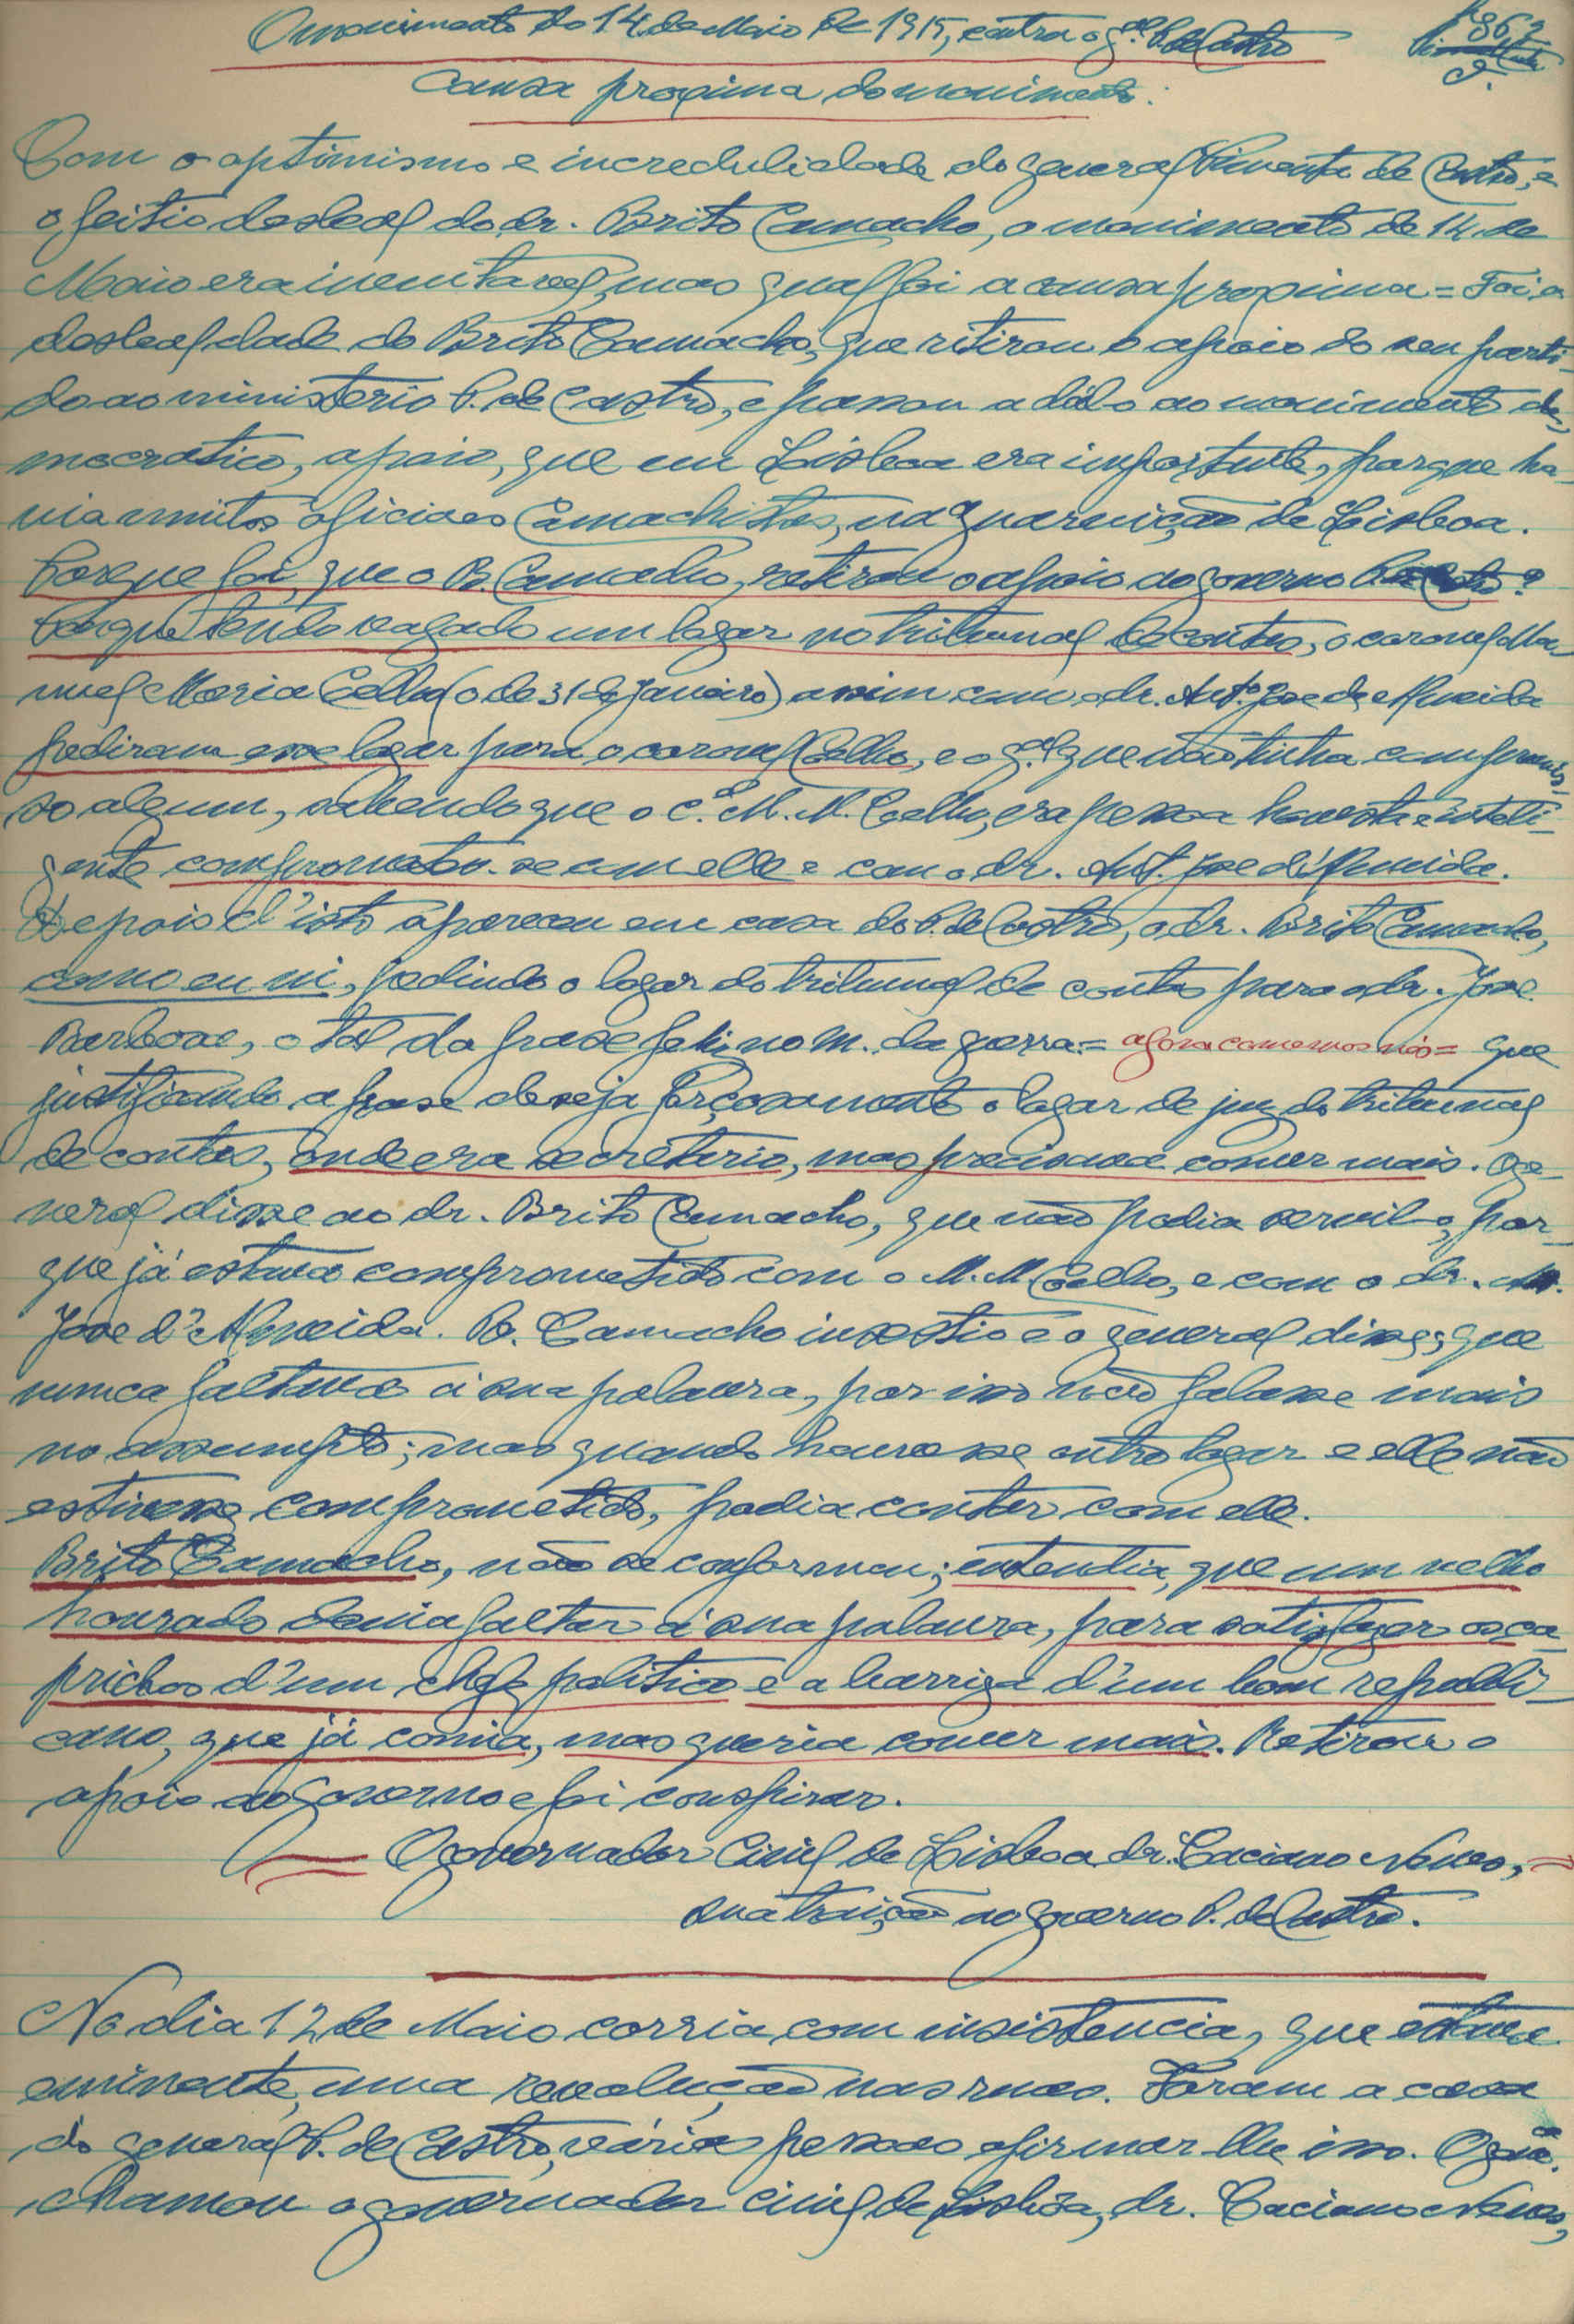 O movimento do 14 de Maio de 1915, contra o g.al P. de Castro
Causa proxima do movimento.
Com o optimismo e incredulidade do general Pimenta de Castro, e
o feitio desleal do dr. Brito Camacho, o movimento de 14 de
Maio era inevitavel, mas qual foi a causa proxima = Foi a
deslealdade do Brito Camacho, que ritirou o apoio do seu parti-
do ao ministerio P. de Castro, e passou a dál-o ao movimento de-
mocratico, apoio, que em Lisboa era importante, porque ha-
via muitos oficiaes Camachistas, na guarnição de Lisboa.
Porque foi, que o B. Camacho, retirou o apoio ao governo P. de Castro?
Porque tendo vagado um logar no tribunal de contas, o coronel Ma-
nuel Maria Coelho (o de 31 de Janeiro) assim como o dr. Ant.º Jose de Almeida
pediram esse logar para o coronel Coelho, e o g.al que não tinha compromis-
so algum, sabendo que o c.el M. M. Coelho, era pessoa honesta e inteli-
gente comprometeu-se com elle e com o dr. Ant. Jose d'Almeida.
Depois d'isto apareceu em casa do P. de Castro, o dr. Brito Camacho,
como eu vi, pedindo o logar do tribunal de contas para o dr. Jose
Barbosa, o tal da frase feliz no M. da guerra = agora comemos nós = que
justificando a frase deseja forçosamente o logar de juiz do tribunal
de contas, onde era secretario, mas precisava comer mais. O ge-
neral disse ao dr. Brito Camacho, que não podia servil-o, por-
que já estava comprometido com o M. M. Coelho, e com o dr. Ant.
Jose d'Almeida. B. Camacho insestio e o general disse; que
nunca faltava á sua palavra, por isso não falasse mais
no assumpto; mas quando houvesse outro logar e elle não
estivesse comprometido, podia contar com elle.
Brito Camacho, não se conformou; entendia, que um velho
honrado devia faltar á sua palavra, para satisfazer os ca-
prichos d'um chefe politico e a barriga d'um bom republi-
cano, que já comia, mas queria comer mais. Retirou o
apoio ao governo e foi conspirar.
O governador Civil de Lisboa dr. Caciano Neves,
sua traição ao governo P. de Castro.
No dia 12 de Maio corria com insistencia, que estava
eminente, uma revolução nas ruas. Foram a casa
do general P. de Castro, várias pessoas afirmar-lhe isso.
chamou o governador civil de Lisboa, dr. Caciano Neves,